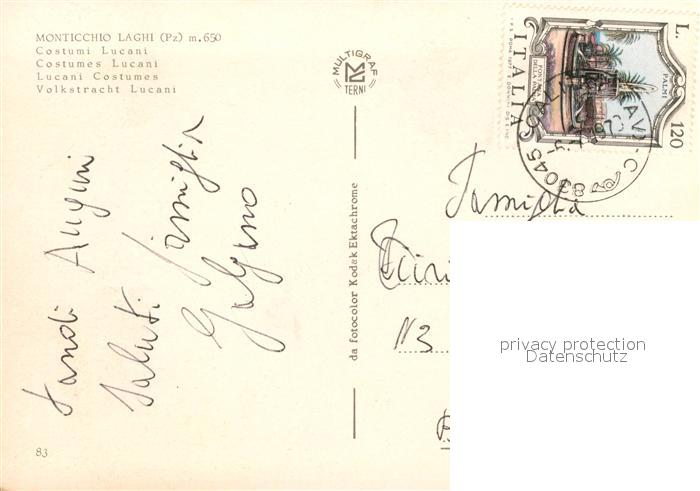 MONTICCHIO LAGHI (Pz) m.650
Costumi Lucani
Costumes Lucani
Lucani Costumes
Volkstracht Lucani
Tanti Auguri
Saluti famiglia
Galgano
83
da fotocolor Kodak Ektachrome
MULTIGRAF
TERNI
L. 120
ITALIA
PALMI
FONTANA DELLA PALMA
83045
Famiglia
N3
privacy protection
Datenschutz